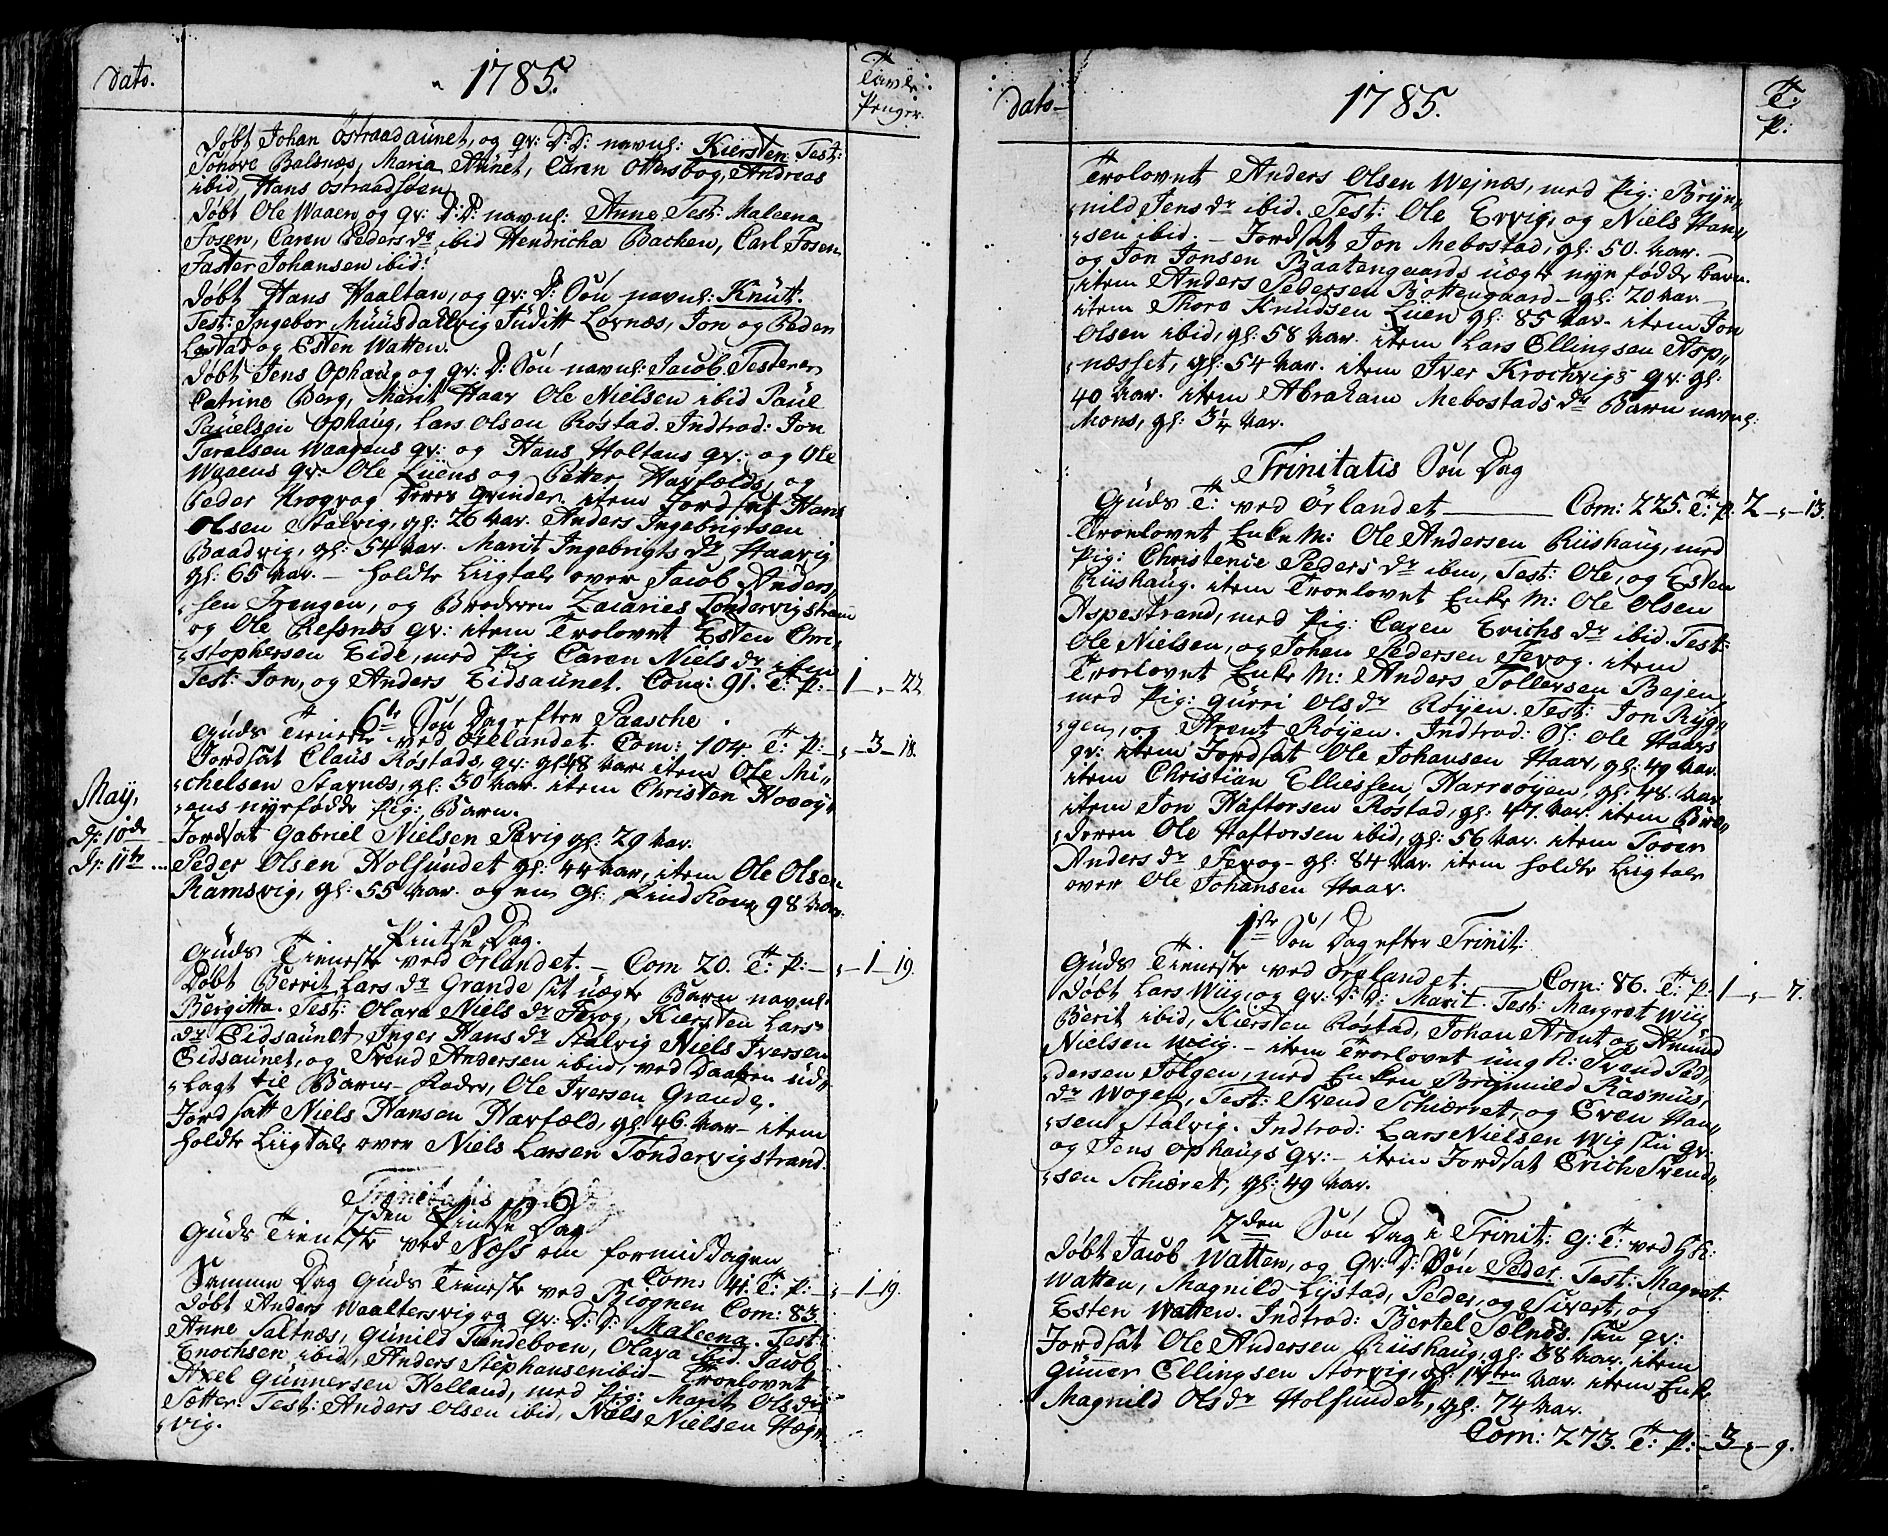 Dato.
1785.
Tavle
Penger.
Døbt Johan Østraadaunet, og qv: D: D: navnl: Kiersten Test:
Tohove Balsnæs, Maria Aunet, Caren Ottersbog, Andreas
ibid, Hans Østraadsøen
Døbt Ole Waaen og qv: D: D: navnl: Anne Test: Maleena
Fosen, Caren Peders dr ibid Hendricha Backen, Carl Fosen
Faster Johansen ibid:
Døbt Hans Haaltan, og qv: D: Søn navnl: Knut.
Test: Ingebor Muusdallvig Juditt Lovnæs, Jon og Peder
Lestad og Esten Watten.
Døbt Jens Ophaug og qv: D: Søn navnl: Jacob Testerer
Catrine Berg, Marit Haar Ole Nielsen ibid Paul
Pauelsen Ophaug, Lars Olsen Røstad. Indtrod: Jon
Taralsen Waagens qv: og Hans Holtans qv: og Ole
Waaens qv: Ole Luens og Petter Havfælds, og
Peder Krogvog deres qvinder. item Jordsat Hans
Olsen Stalvig, gl: 26 Aar. Anders Ingebrigtsen
Baadvig, gl: 54 Aar. Marit Ingebrigts dr Haavig
gl: 65 Aar. – holdte Liigtale over Jacob Anders,,
,,sen Frengen, og Broderen Zacaries Tøndervigstrand
og Ole Ressnæs qv: item Trolovet Esten Chri,,
,,stophersen Eide, med Pig Caren Niels dr ibm
Test: Jon, og Anders Eidsaunet. Com: 91. T: P: – 1 – „ – 22
6te Søn Dag efter Paasche
Guds Tieneste ved Ørlandet. Com: 104 T: P: – „ – 3 – 18.
Jordsat Claus Røstads, qv: gl: 48 Aar item Ole Mi,,
,,chelsen Starnæs, gl: 30 Aar. item Christen Hovøy,,
,,ens nyefødde Pig: Barn.
May,
d: 10de Jordsat Gabriel Nielsen Revig gl: 29 Aar.
d: 11te ... Peder Olsen Holsundet gl: 44 Aar, item Ole Olsen
Ramsvig, gl: 55 Aar. og en gl: Pind Kone, 98 Aar.
Pintse Dag.
Guds Tieneste ved Ørlandet. – Com 20. T: P: – „ – 1 – 19.
Døbt Berrit Lars dr Grande sit uægte Barn navnl:
Bergitta. Test: Olava Niels dr Fevog, Kiersten Lars
dr Eidsaunet, Inger Hans dr Stalvig Niels Iversen
Eidsaunet, og Svend Andersen ibid, ved Daaben ud,,
,,lagt til Barne-Fader, Ole Iversen Grande.
Jordsatt Niels Hansen Havfæld, gl: 46 Aar – item
holdte Liigtale over Niels Larsen Tøndervigstrand.
Trinitatis
2den Pintse Dag
Guds Tieneste ved Næss om formiddagen
Com: 41. T: P: – „ – 1 – 19.
Samme Dag Guds Tieneste ved Biognen Com: 83.
Døbt Anders Waaltersvig og qv: D: D: Maleena. Test:
Anne Saltnæs, Gunild Tandeboen, Olava ibid. Jacob
Enochsen ibid, Anders Stephansen ibid – Troelovet
Axel Gunnersen Helland, med Pig: Marit Ols dr
Sætter. Test: Anders Olsen ibid, Niels Nielsen Hag,,
,,vig.
Dato –
1785.
T:
P:
Trolovet Anders Olsen Wejnæs, med Pig: Bryn,,
,,nild Jens dr ibid. Test: Ole Ervig, og Niels Han,,
,,sen ibid. – Jordsat Jon Mebostad, gl: 50. Aar.
og Jon Jonsen Baatengaards uægte nyefødde barn.
item Anders Pedersen Bottengaard – gl: 70 Aar –
item Thore Knudsen Luen gl: 85 Aar. item Jon
Olsen ibid, gl: 58 Aar. item Lars Ellingsen Asp,,
,,næsset, gl: 54 Aar. item Iver Krochvigs qv: gl:
40 Aar. item Abraham Mebostads dr Barn navnl:
Mons, gl: 3¼ Aar.
Trinitatis Søn Dag
Guds T: ved Ørlandet — Com: 225. T: P. 2 – „ – 13.
Troelovet, Enke M: Ole Andersen Riishaug, med
Pig: Christence Peders dr ibm, Test: Ole, og Esten
Riishaug. item Troelovet Enke M: Ole Olsen
Aspestrand, med Pig: Caren Erichs dr ibid. Test:
Ole Nielsen, og Johan Pedersen Fevog. item
Troelovet Enke M: Anders Tollefsen Bejen,
med Pig: Gurri Ols dr Røyen. Test: Jon Ryg,,
,,gen, og Arent Røyen. Indtrod: Ole Haars
qv: item Jordsat Ole Johansen Haar, gl: 49 Aar.
item Christian Elliessen Harrsøyen, gl: 48. Aar
item Jon Haftorsen Røstad, gl: 47. Aar. item Bro,,
,,deren Ole Haftorsen ibid, gl: 56 Aar. item Tover
Anders dr Fevog – gl: 84 Aar. item holdte Liigtale
over Ole Johansen Haar.
1ste Søn Dag efter Trinit:
Guds Tieneste ved Ørlandet. Com: 86. T: P. 1 – „ – 7.
Døbt Lars Wiig, og qv: D: D: Marit. Test: Margret Wiig
Berit ibid, Kiersten Røstad, Johan Arent og Amund
Nielsen Wiig. – item Troelovet ung K: Svend Ped,,
,,dersen Folgen, med Enken Brynnild Rasmus,
dr Wogen, Test: Svend Schiærret, og Even Han,,
,,sen Stalvig. Indtrod: Lars Nielsen Wig sin qv:
og Jens Ophaugs qv: – item Jordsat Erich Svend,,
,,sen Schiæret, gl: 49 Aar.
2den Søn Dag i Trinit: G: T: ved H:K:
Døbt Jacob Watten, og qv: D: Søn Peder. Test: Magret
Watten, Magnild Lystad, Peder, og Sivert, og
Esten Watten. Indtrod: Bertel Selnæs. sin qv:
Jordsat Ole Andersen Riishaug, gl: 38 Aar. item
Gunner Ellingsen Storvig, gl: 14ten Aar. item Enke
Magnild Ols dr Holsundet, gl: 74 Aar.
Com: 273. T: P: – 3 – „ – 9.